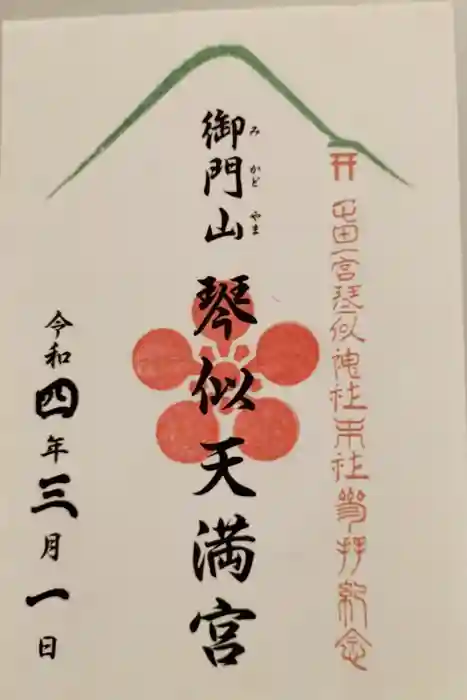 屯田一宮琴似神社末社参拝紀念
御門山 琴似天満宮
みかどやま
令和四年三月一日